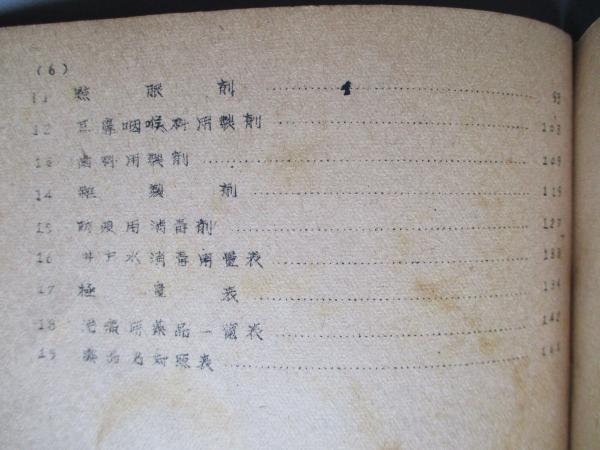 (6)
11 點眼劑 93
12 耳鼻咽喉科用製劑 103
13 歯科用製劑 109
14 雜製劑 119
15 防疫用消毒劑 127
16 井戸水消毒用量表
17 極量表 134
18 治療用薬品一覧表 142
19 対照表